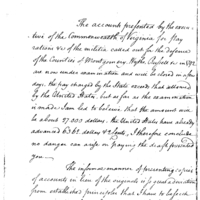 The accounts presented by the exec-
utive of the Commonwealth of Virginia for pay
rations &c of the militia called out for the defence
of the Counties of Montgomery, Wythe, Russell &c in 1792
are now under examination and will be closed in a few
days, the pay charged by the State exceeds that allowed
by the United States, but as far as the examination
is made I am led to believe that the amount will
be about 27.000 dollars. the United States have already
advanced dollars &
no danger can arise in paying the draft presented
you
The informal manner of presenting copies
of accounts in lieu of the originals is
from established principles that I have to